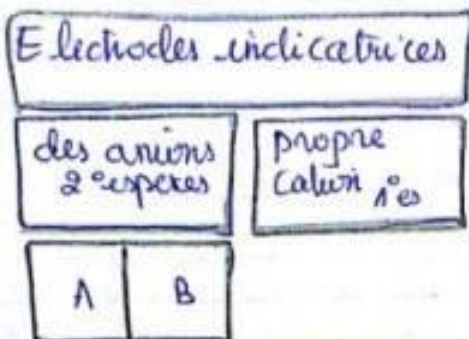 Electrodes indicatrices
des anions
2° especes
propre
Cation 1° es
A B